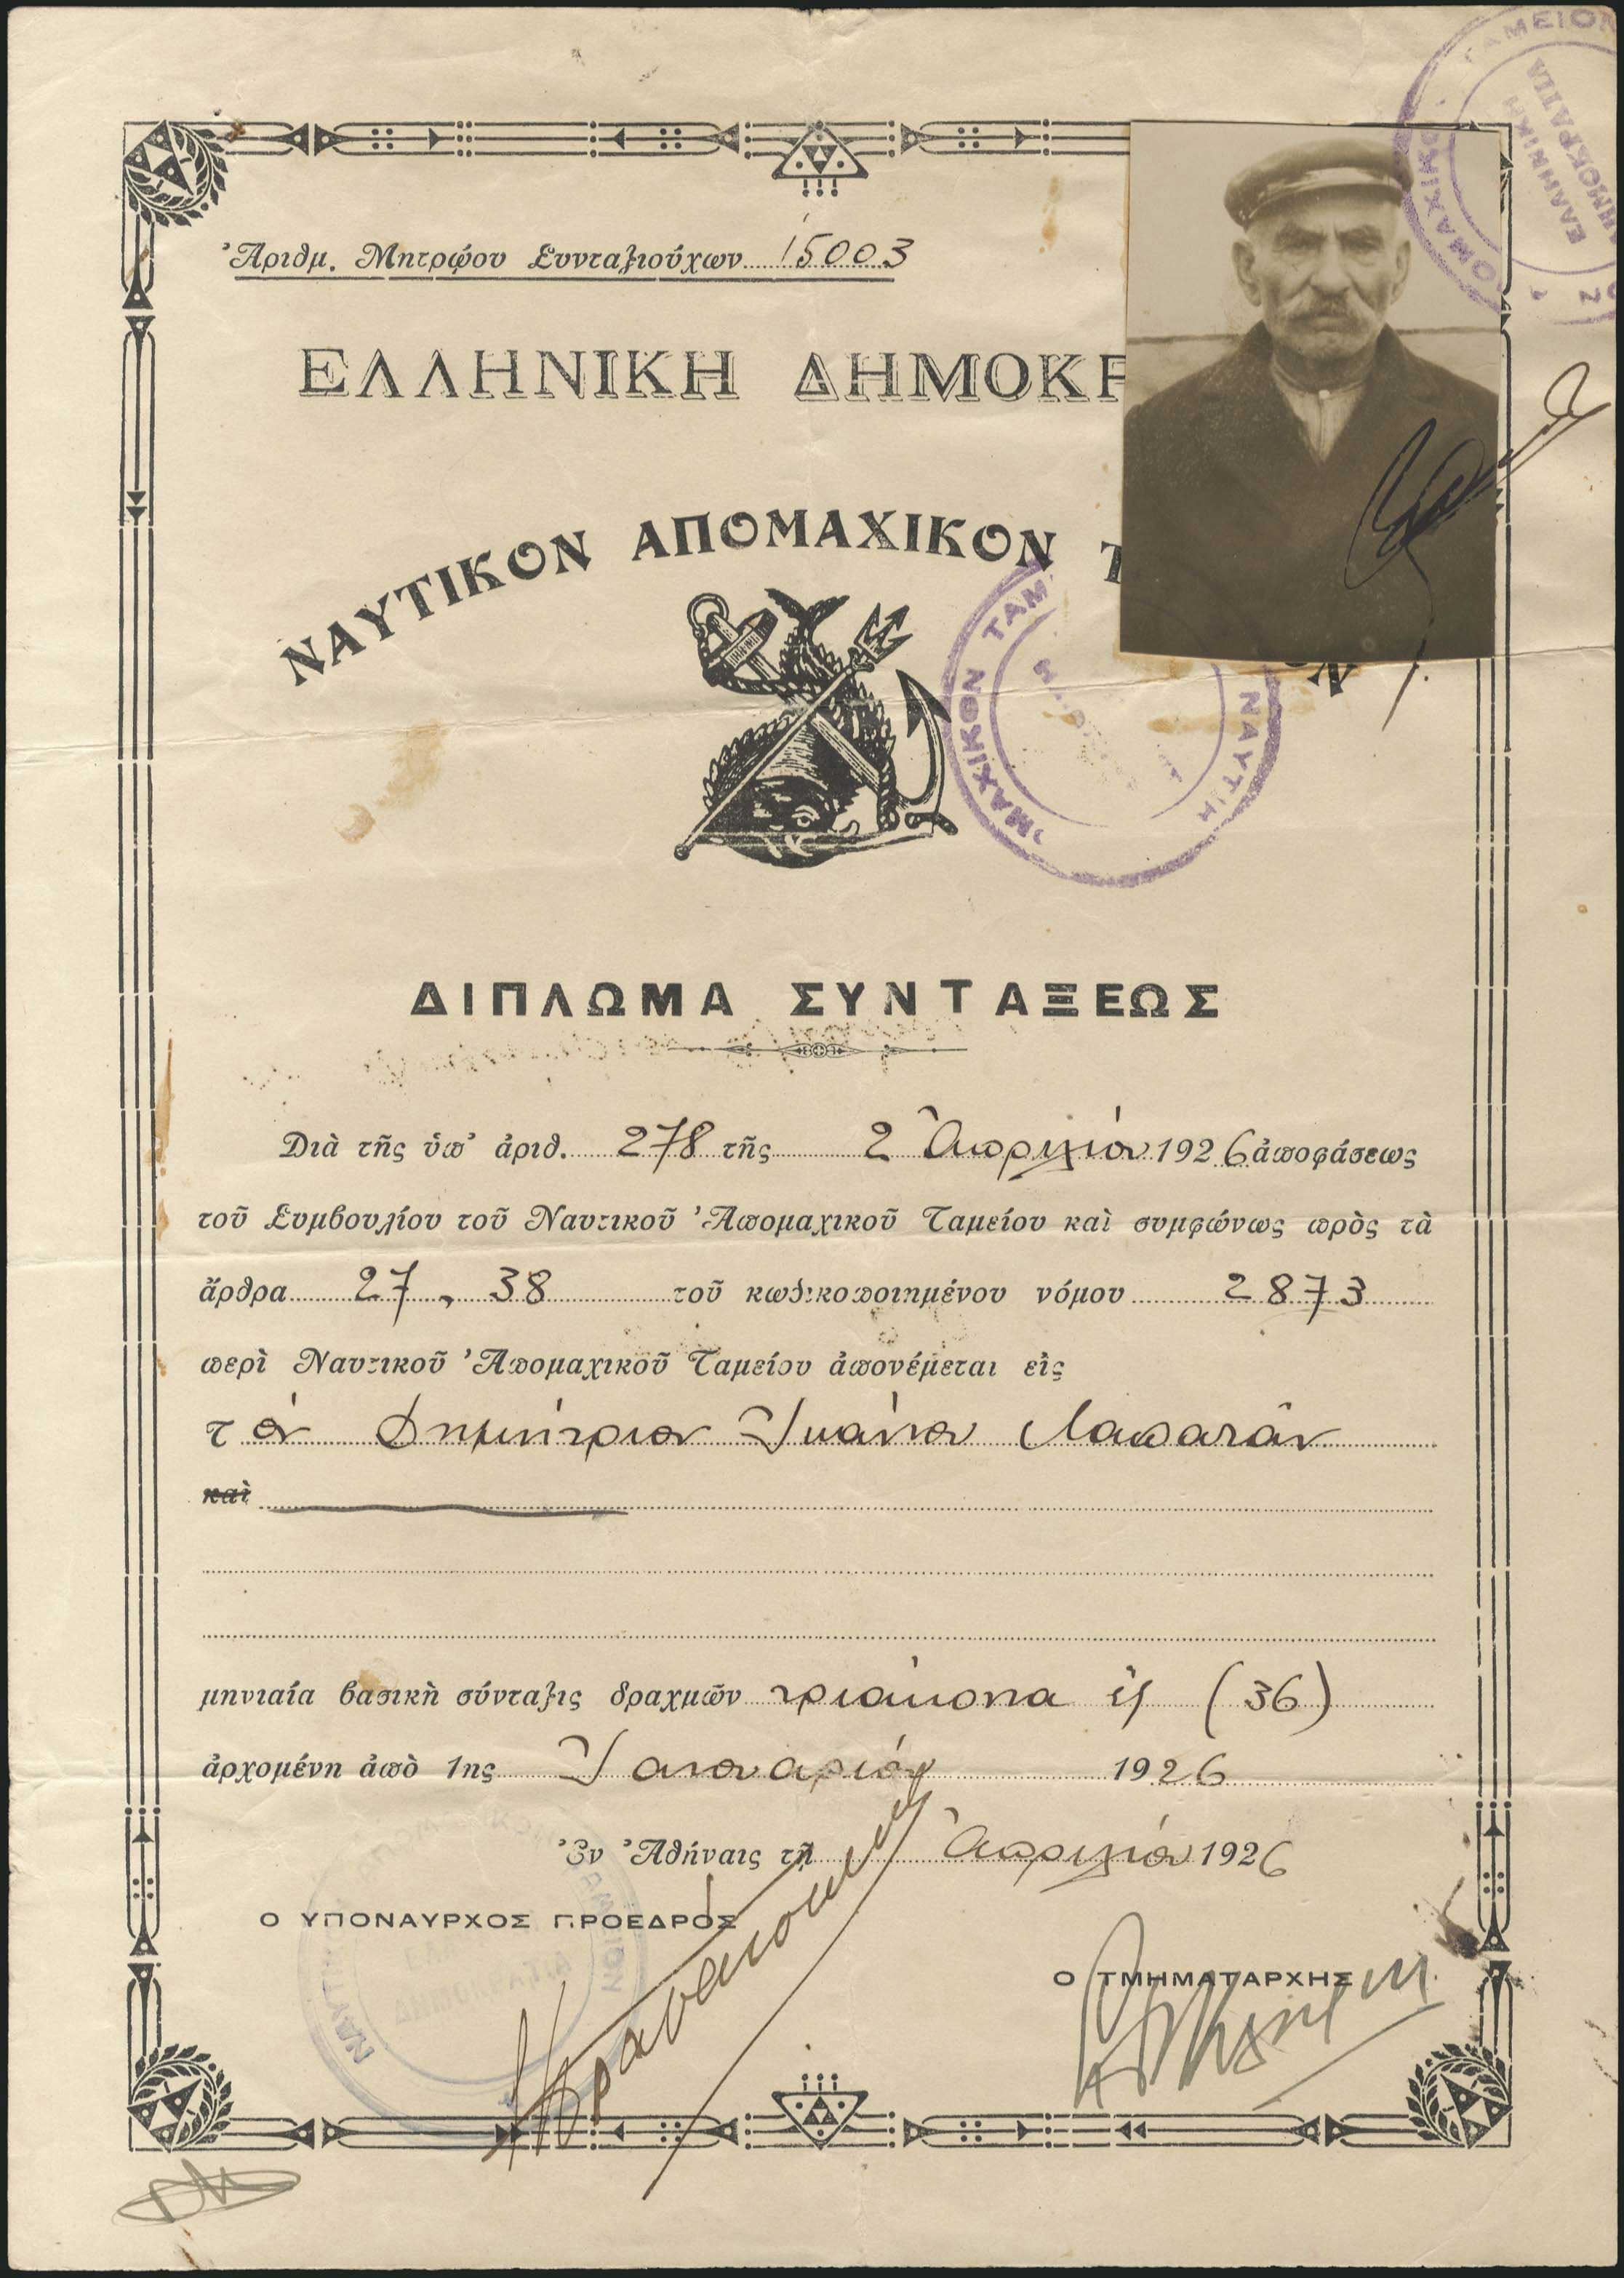 Ἀριθμ. Μητρῴου Συνταξιούχων 15003
ΕΛΛΗΝΙΚΗ ΔΗΜΟΚΡ
ΝΑΥΤΙΚΟΝ ΑΠΟΜΑΧΙΚΟΝ Τ
ΔΙΠΛΩΜΑ ΣΥΝΤΑΞΕΩΣ
Διὰ τῆς ὑπ' ἀριθ. 278 τῆς 2 Ἀπριλίου 1926 ἀποφάσεως
τοῦ Συμβουλίου τοῦ Ναυτικοῦ Ἀπομαχικοῦ Ταμείου καὶ συμφώνως πρὸς τὰ
ἄρθρα 27, 38 τοῦ κωδικοποιημένου νόμου 2873
περὶ Ναυτικοῦ Ἀπομαχικοῦ Ταμείου ἀπονέμεται εἰς
τὸν Δημήτριον
καὶ
μηνιαία βασικὴ σύνταξις δραχμῶν τριάκοντα ἕξ (36)
ἀρχομένη ἀπὸ 1ης Ἰανουαρίου 1926
Ἐν Ἀθήναις τῇ Ἀπριλίου 1926
Ο ΥΠΟΝΑΥΡΧΟΣ ΠΡΟΕΔΡΟΣ
Ο ΤΜΗΜΑΤΑΡΧΗΣ
ΕΛΛΗΝΙΚΗ
ΔΗΜΟΚΡΑΤΙΑ